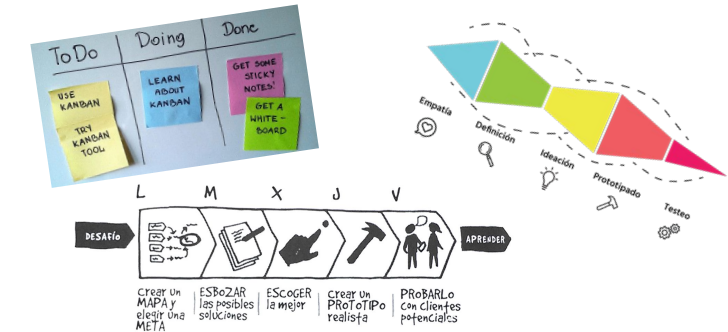 To Do
Doing
Done
USE
KANBAN
TRY
KANBAN
TOOL
LEARN
ABOUT
KANBAN
GET SOME
STICKY
NOTES!
GET A
WHITE-
BOARD
Empatía
Definición
Ideación
Prototipado
Testeo
L M X J V
DESAFÍO
APRENDER
crear un
MAPA y
elegir una
META
ESBOZAR
las posibles
soluciones
ESCOGER
la mejor
crear un
PROTOTIPO
realista
PROBARLO
con clientes
potenciales